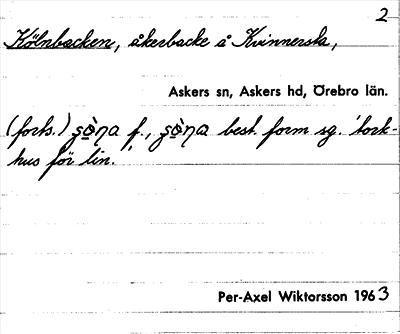 2
Kölnbacken, åkerbacke å Kvinnersta,
Askers sn, Askers hd, Örebro län.
(forts.) f., best. form sg. 'tork-
hus för lin.
Per-Axel Wiktorsson 1963